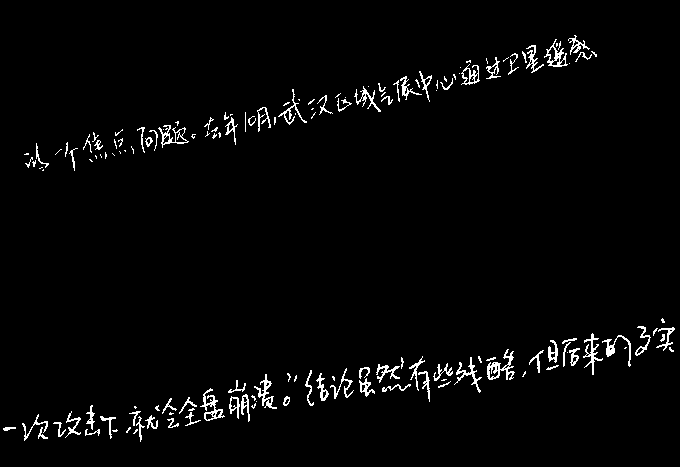 这一个焦点问题。去年10月，武汉区域气候中心通过卫星遥感
一次攻击下，就会全盘崩溃。”结论虽然有些残酷，但后来的事实